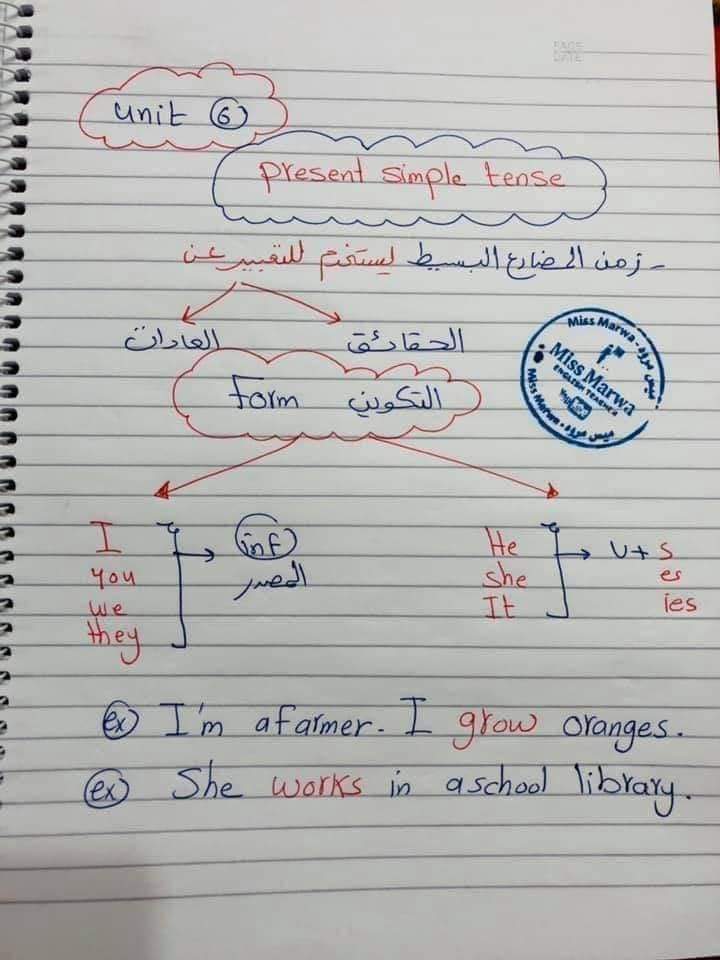 PAGE
DATE
unit 6
present simple tense
- زمن المضارع البسيط يستخدم للتعبير عن
الحقائق العادات
Form التكوين
Miss Marwa - ميس مروه
Miss Marwa
ENGLISH TEACHER
YouTube
Miss Marwa - ميس مروه
I inf He v + s
you المصدر she es
we It ies
they
ex I'm a farmer. I grow oranges.
ex She works in a school library.